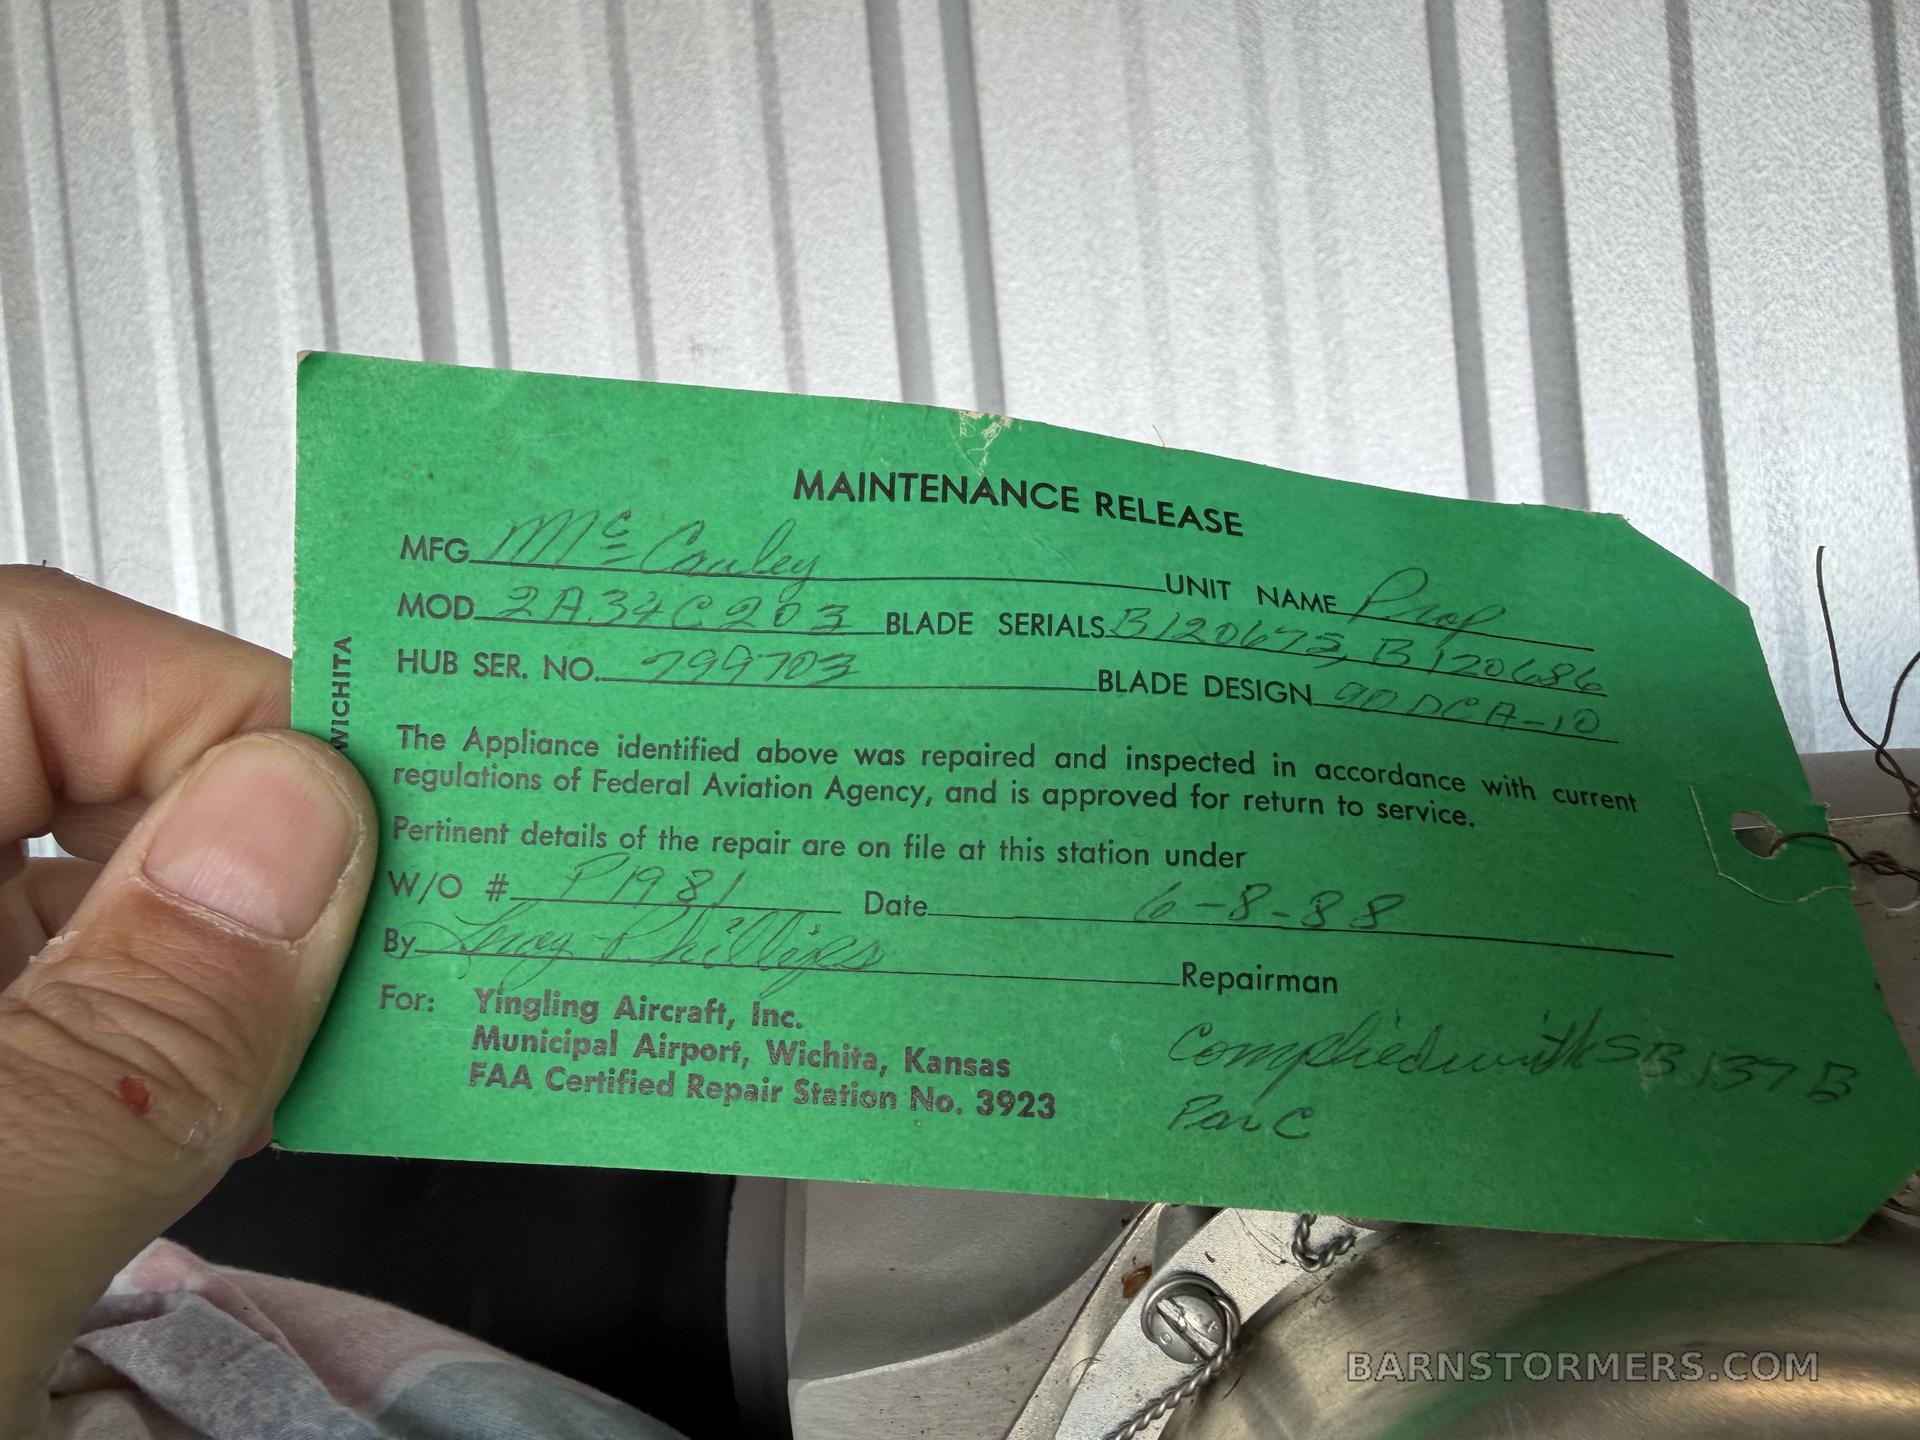 MAINTENANCE RELEASE
MFG Mc Cauley UNIT NAME Prop
MOD 2A34C203 BLADE SERIALS B120673, B120686
HUB SER. NO. 799703 BLADE DESIGN 90DCA-10
The Appliance identified above was repaired and inspected in accordance with current
regulations of Federal Aviation Agency, and is approved for return to service.
Pertinent details of the repair are on file at this station under
W/O # P1981 Date 6-8-88
By Phillips Repairman
For: Yingling Aircraft, Inc.
Municipal Airport, Wichita, Kansas
FAA Certified Repair Station No. 3923
Complied with SB 137B
Par C
WICHITA
BARNSTORMERS.COM